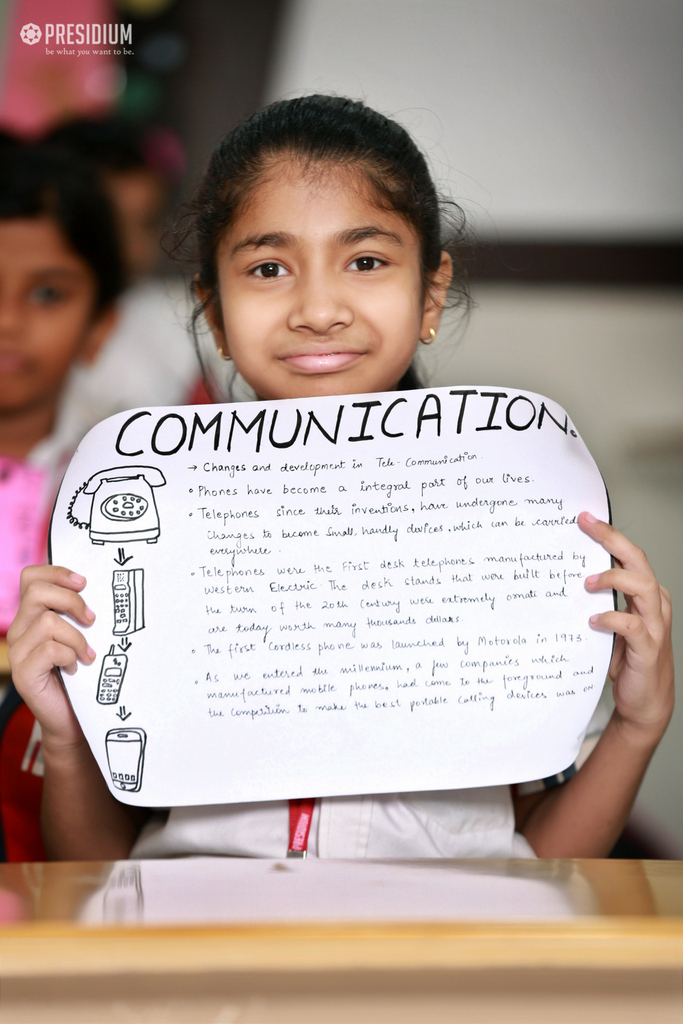 PRESIDIUM
be what you want to be.
COMMUNICATION.
→ Changes and development in Tele-Communication.
• Phones have become a integral part of our lives.
• Telephones since their inventions, have undergone many
changes to become small, handly devices, which can be carried
everywhere.
• Telephones were the First desk telephones manufactured by
western Electric. The desk stands that were built before
the turn of the 20th Century were extremely ornati and
are today worth many thousands dollars.
• The first Cordless phone was launched by Motorola in 1973.
• As we entered the millennium, a few companies which
manufactured mobile phones, had come to the foreground and
the competition to make the best portable calling devices was on
PRESIDIUM